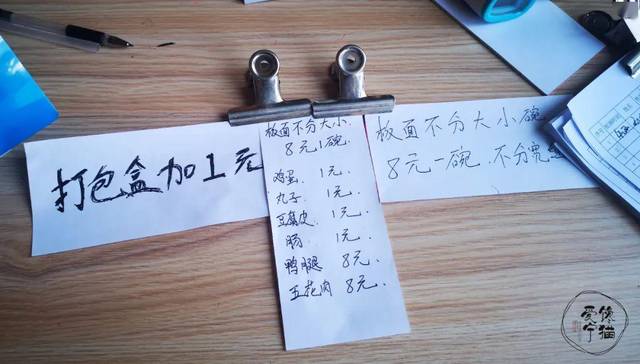 打包盒加1元
板面不分大小.
8元1碗.
鸡蛋. 1元.
丸子. 1元.
豆腐皮. 1元.
肠. 1元.
鸭腿 8元.
五花肉 8元.
板面不分大小碗
8元一碗.不分宽